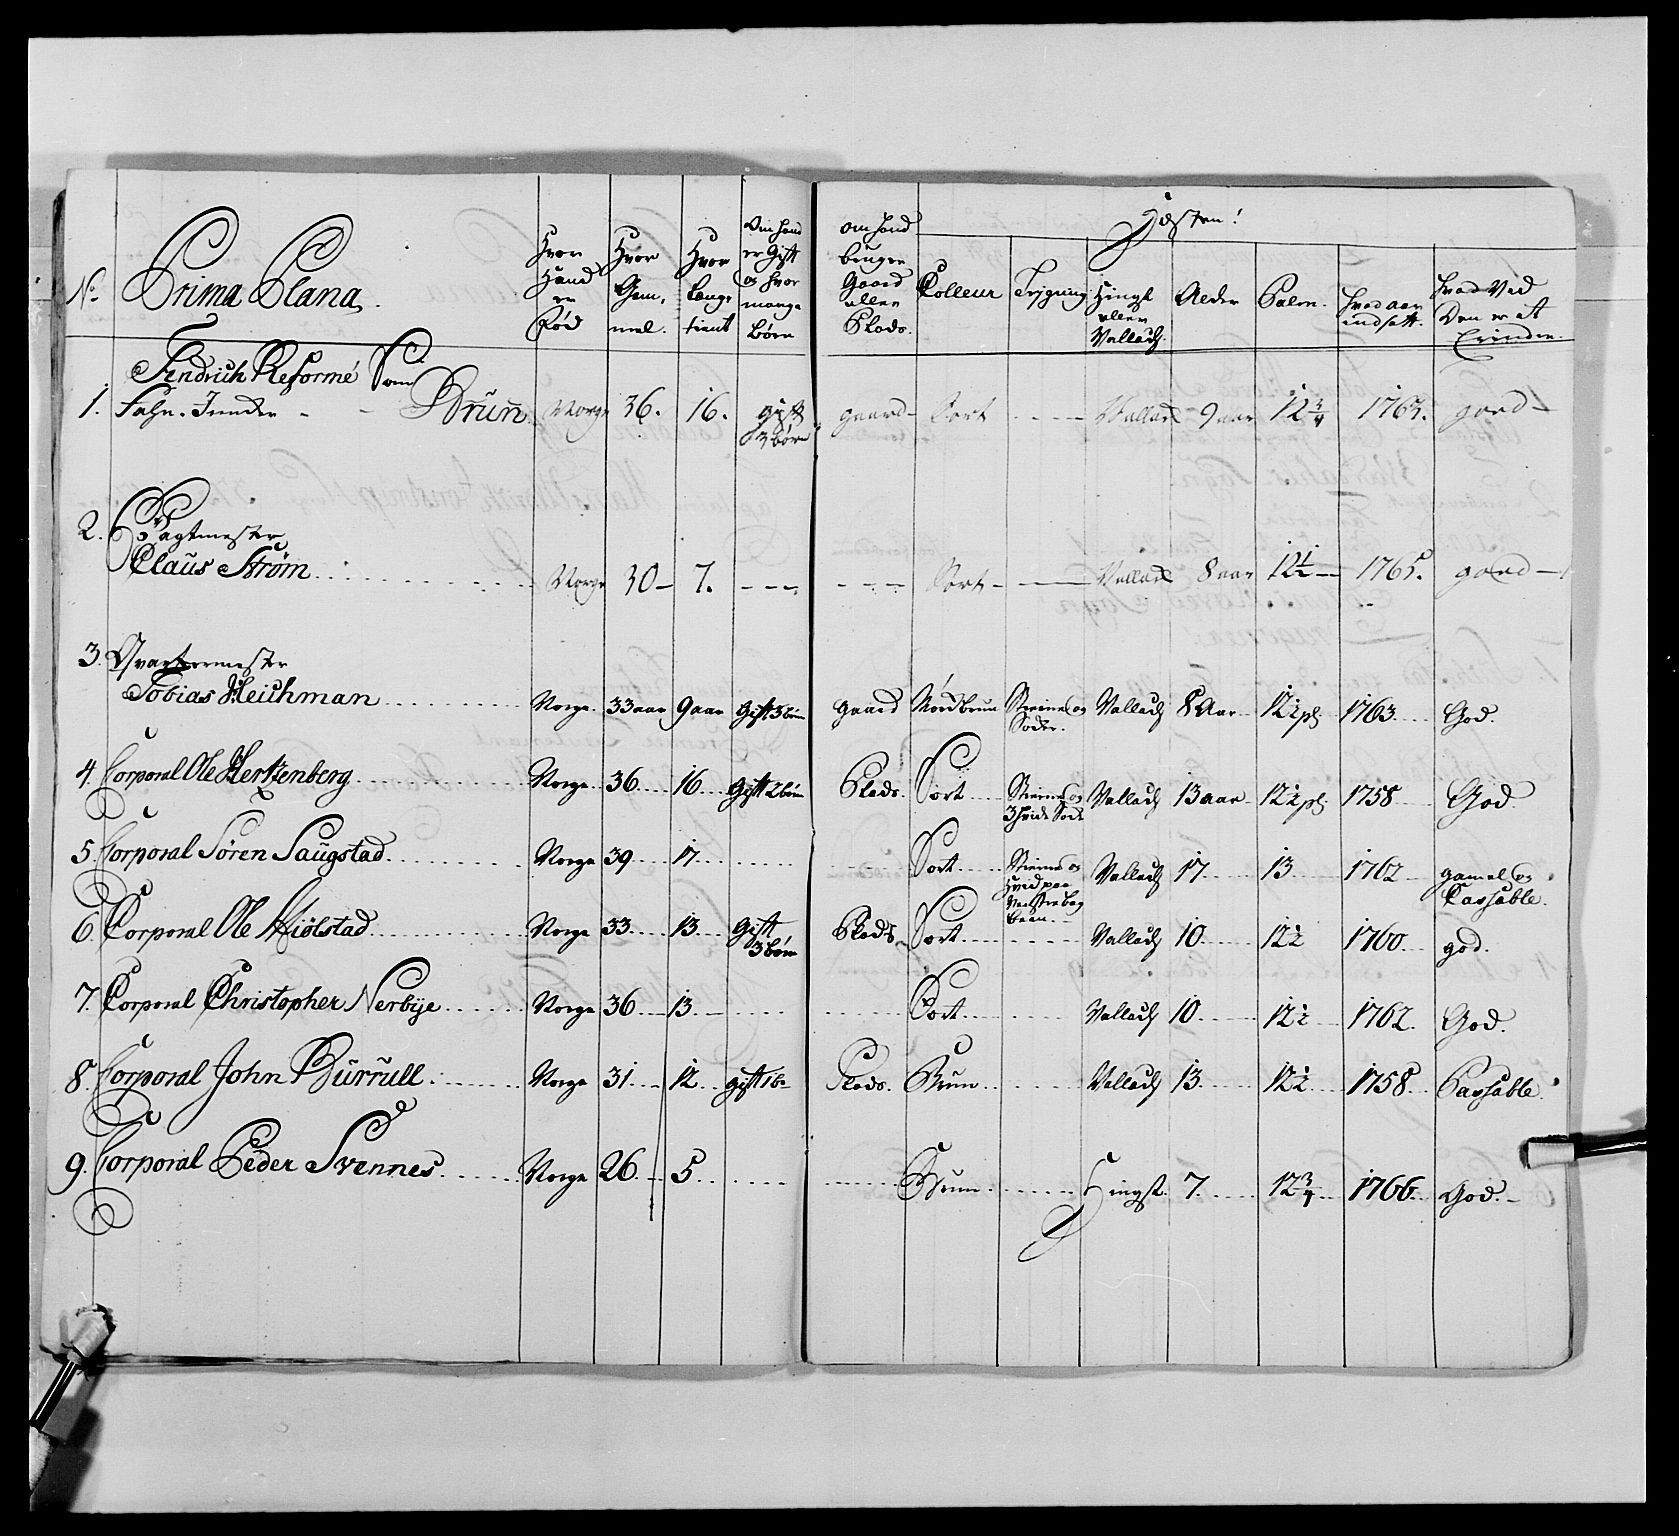 No. Prima Plana.
Hvor Hand er Fød
Hvor Gam- mel.
Hvor Lenge tient
Om hand er Gift og hvor mange Børn
om hand bruger Gaard eller Plads.
Hæsten!
Colleur
Tegning
Hingst eller Vallach.
Alder
Palm.
hvad aar indsatt.
hvad Ved Den er at Erindre.
Fendrich Reformé Som
1. Fahn-Juncker - - Brun Norge 36. 16. gift 3 børn gaard- Sort - - - Vallach 9 aar 12 3/4 1765. goed -
2. Vagtmester
Claus Strøm Norge 30 - 7. - - - - - - Sort - - Vallach 8 aar 12 1/2 - 1765. goed -
3. Qvartermester
Tobias Heichman Norge. 33 aar 9 aar Gift 3 børn gaard Mørdbrun Stierne og Soder. Vallach 8 Aar 12 1/2 pl. 1763 God.
4. Corporal Ole Hertzenberg Norge 36 16 Gift 2 børn Plads. Sort Stierne og 3 hvide Sode Vallach 13 aar 12 1/2 pl. 1758 God.
5. Corporal Søren Saugstad Norge 39 17 Sort Stierne og Hvid paa Venstre bag been. Vallach 17 13 1762 gamel og Passable.
6. Corporal Ole Miølstad Norge 33 13 Gift 3 børn Plads Sort Vallach 10 12 1/2 1760 god.
7. Corporal Christopher Nerbye Norge 36 13 Sort Vallach 10 12 1/2 1762. God.
8. Corporal John Burrull. Norge 31 12 gift 1 b. Plads. Brun Vallach 13 12 1/2 1758 Passable.
9. Corporal Peder Svennes Norge 26 5 Brun Hingst 7. 12 3/4 1766. God. -